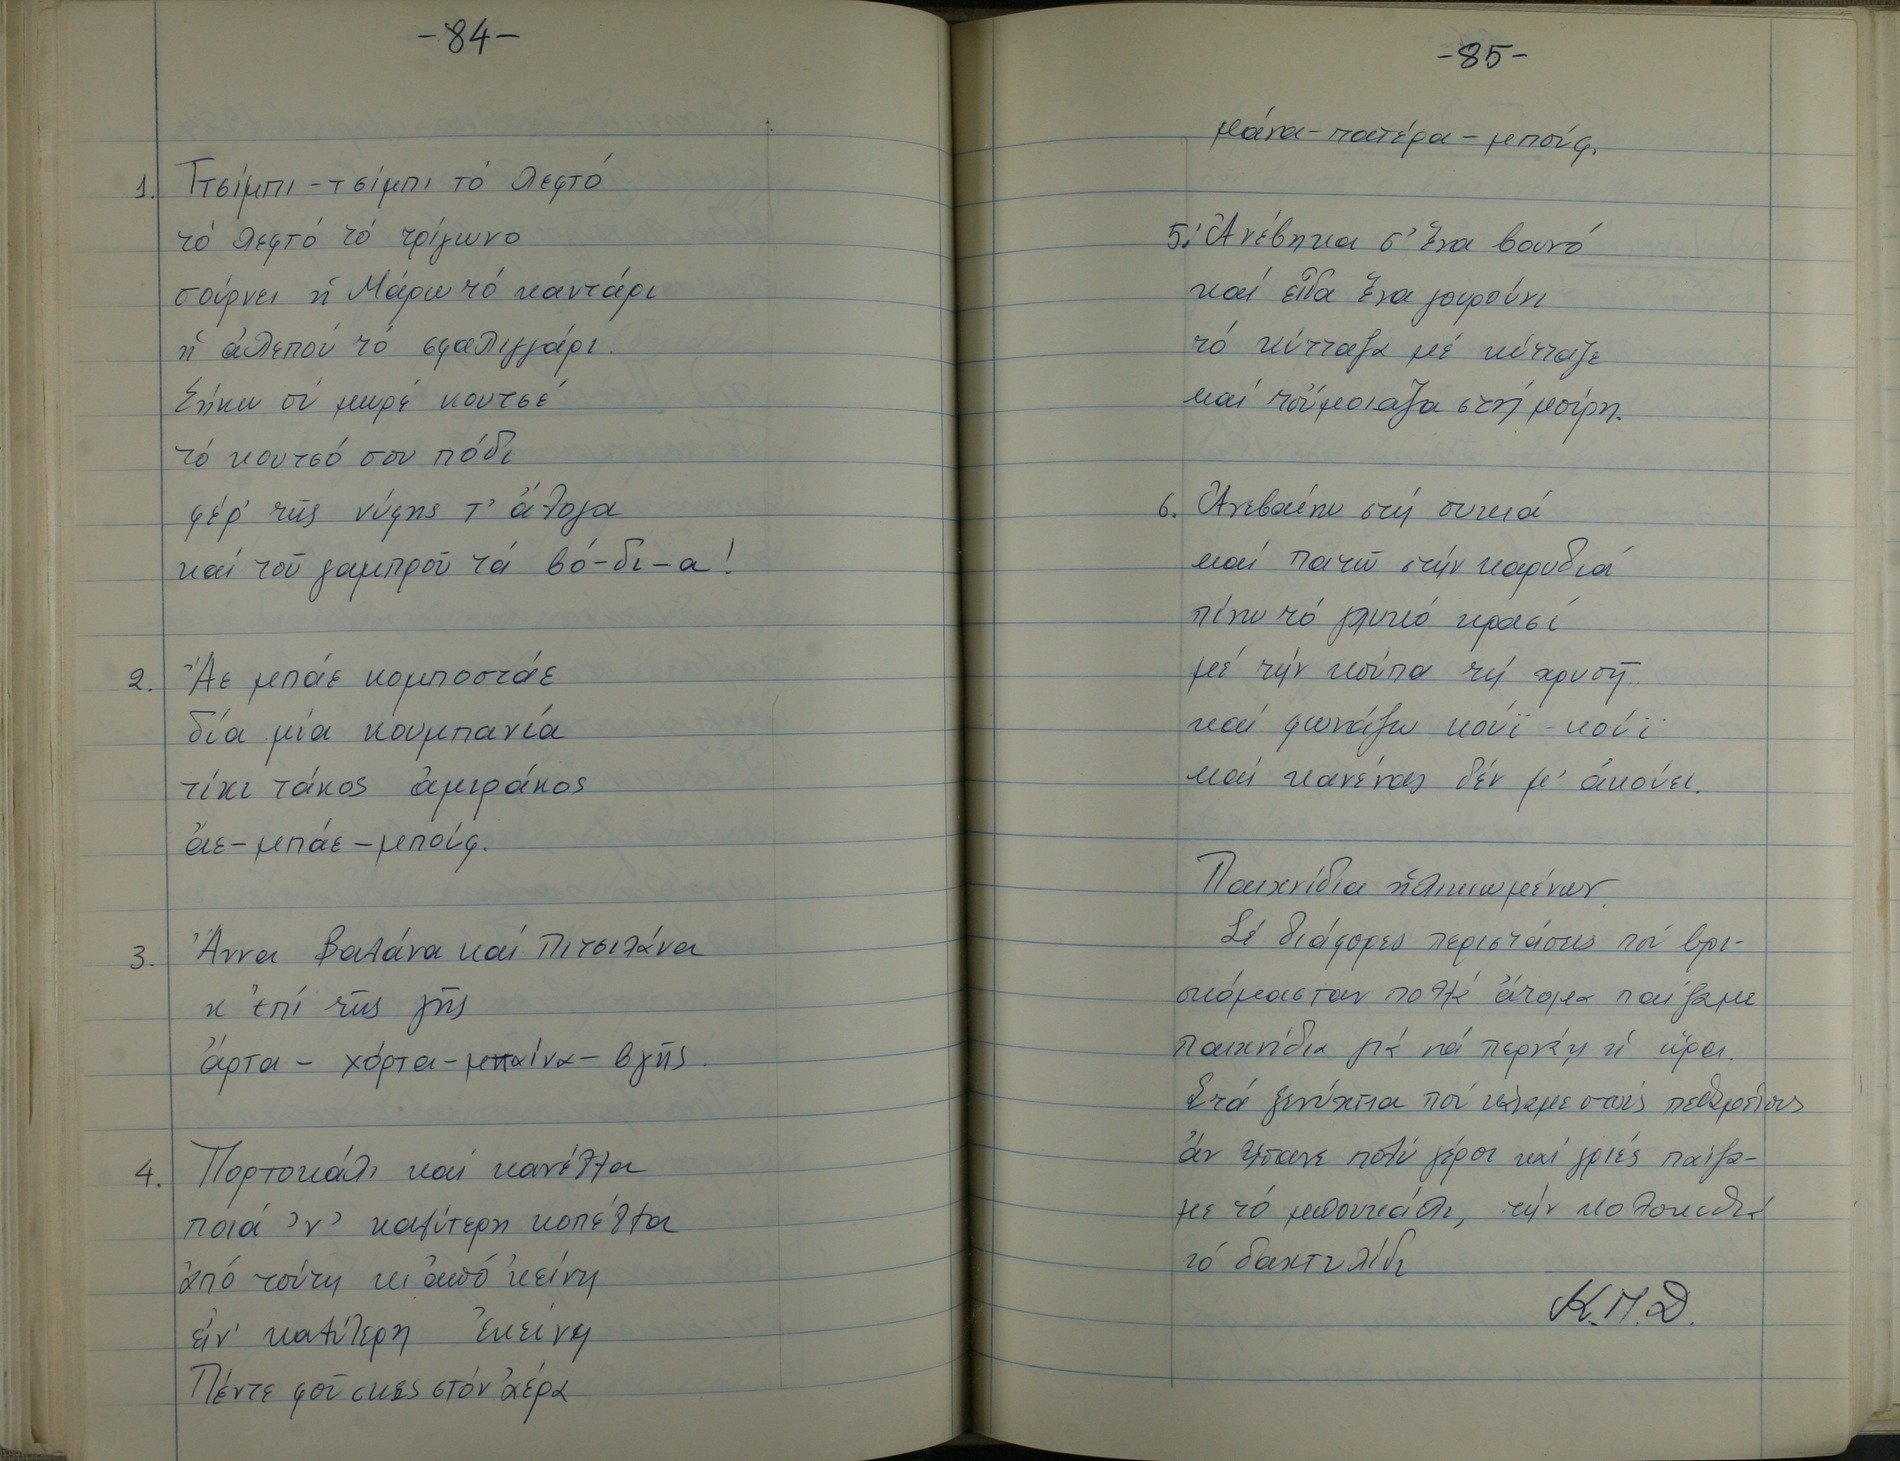 -84-
1. Ττσίμπι - τσίμπι τό λεφτό
τό λεφτό τό τρίγωνο
σούρνει ἡ Μάρω τό καντάρι
ἡ ἀλεπού τό σφαλιγγάρι.
Σήκω σύ μωρέ κουτσέ
τό κουτσό σου πόδι
φέρ' τῆς νύφης τ' ἄλογα
καί τοῦ γαμπροῦ τά βό-δι-α!
2. Ἄε μπάε κομποστάε
δία μία κουμπανία
τίκι τάκος ἀμιράκος
ἄε - μπάε - μπούφ.
3. Ἄννα βαλάνα καί πιτσιλάνα
κ ἐπί τῆς γῆς
ἄρτα - χόρτα - μπαίνα - βγῆς.
4. Πορτοκάλι καί κανέλλα
ποιά 'ν' καλύτερη κοπέλλα
ἀπό τούτη κι ἀπό κείνη
εἶν' καλύτερη ἐκείνη
Πέντε φοῦσκες στόν ἀέρα
-85-
μάνα - πατέρα - μπούφ.
5. Ἀνέβηκα σ' ἕνα βουνό
καί εἶδα ἕνα γουρούνι
τό κύτταξα μέ κύτταξε
καί τοὔμοιαζα στή μούρη.
6. Ἀνεβαίνω στή συκιά
καί πατῶ στήν καρυδιά
πίνω τό γλυκό κρασί
μέ τήν κούπα τή χρυσῆ
καί φωνάζω κούϊ - κούϊ
καί κανένας δέν μ' ἀκούει.
Παιχνίδια ἡλικιωμένων
Σέ διάφορες περιστάσεις πού βρι-
σκόμασταν πολλά ἄτομα παίζαμε
παιχνίδια γιά νά περνάῃ ἡ ὥρα.
Στά ξενύχτια πού κάναμε στούς πεθαμένους
ἄν ἤτανε πολύ γέροι καί γριές παίζα-
με τό μπουκάλι, τήν κολοκυθιά
τό δαχτυλίδι
Κ.Π.Δ.